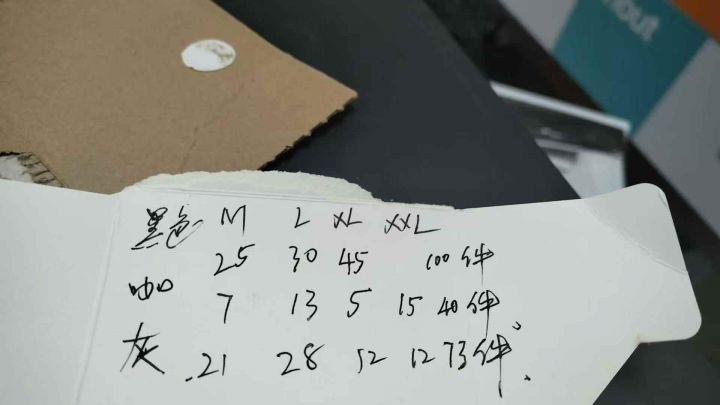 黑色 M L XL XXL
25 30 45 100件
咖 7 13 5 15 40件
灰 21 28 12 12 73件